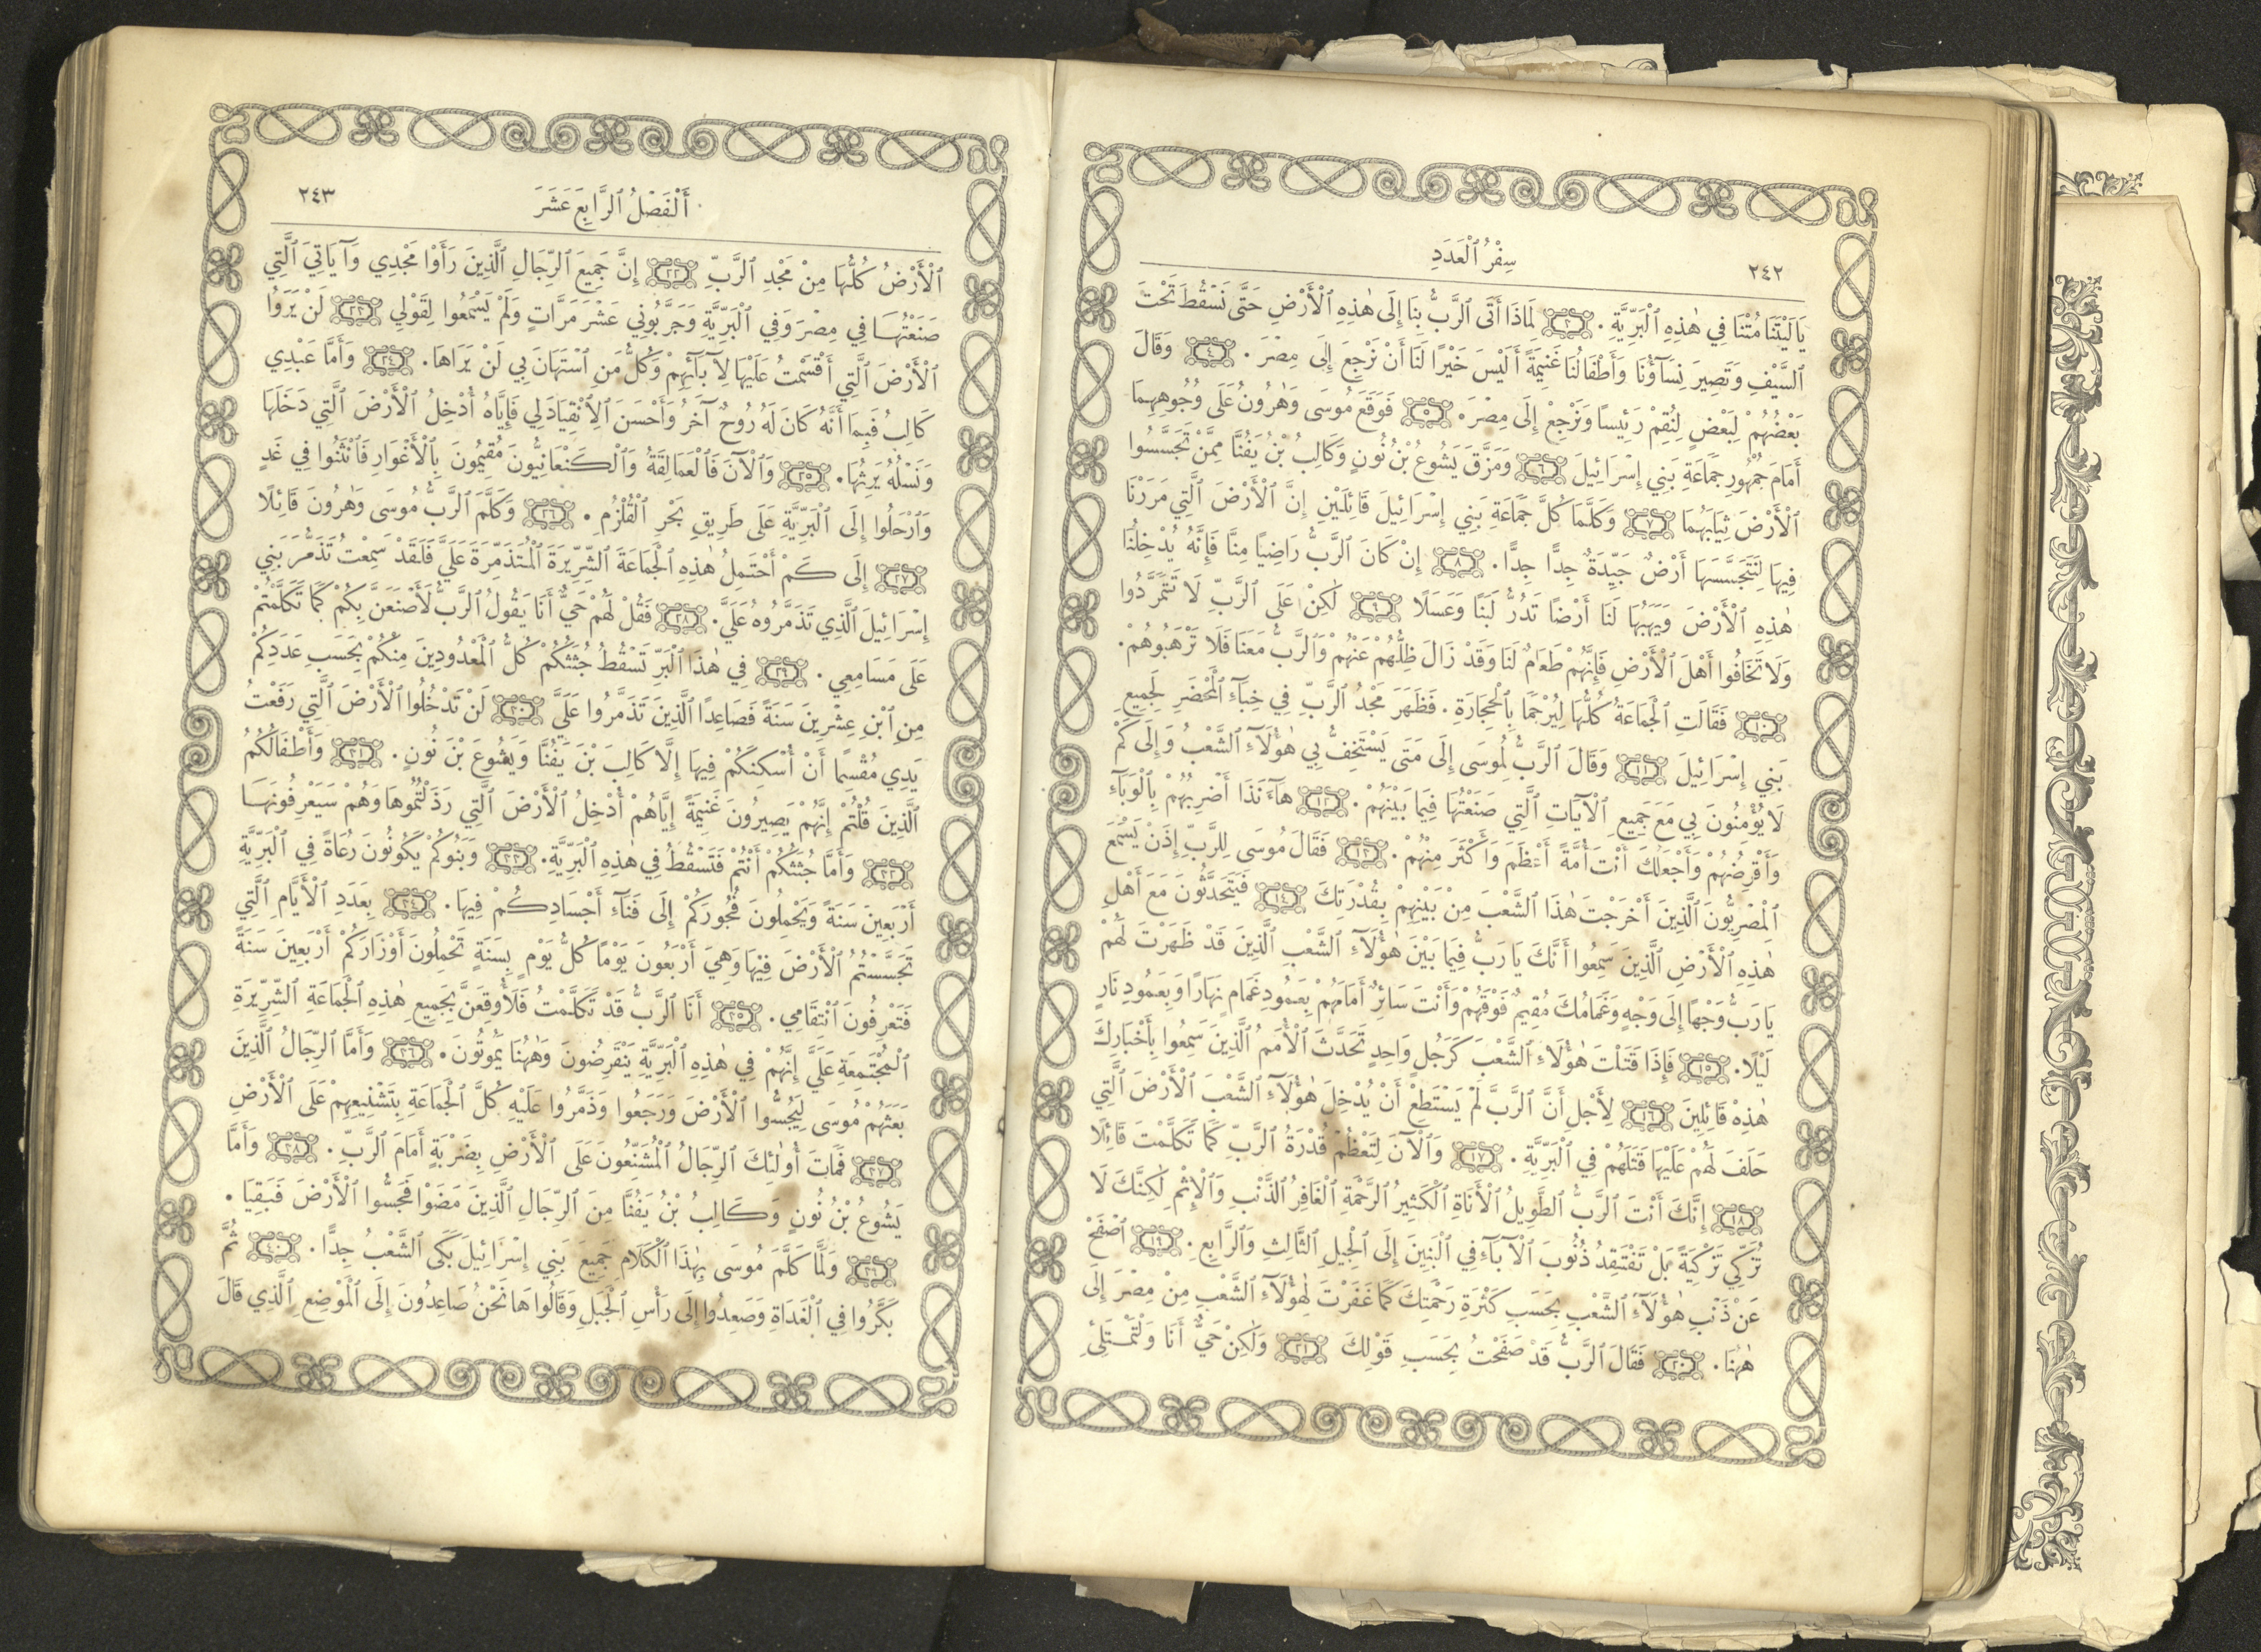 ٢٤٢
سِفْرُ ٱلْعَدَدِ
يَالَيْتَنَا مُتْنَا فِي هٰذِهِ ٱلْبَرِّيَّةِ . ٣ لِمَاذَا أَتَى ٱلرَّبُّ بِنَا إِلَى هٰذِهِ ٱلْأَرْضِ حَتَّى نَسْقُطَ تَحْتَ
ٱلسَّيْفِ وَتَصِيرَ نِسَآؤُنَا وَأَطْفَالُنَا غَنِيمَةً أَلَيْسَ خَيْرًا لَنَا أَنْ نَرْجِعَ إِلَى مِصْرَ . ٤ وَقَالَ
بَعْضُهُمْ لِبَعْضٍ لِنُقِمْ رَئِيسًا وَنَرْجِعْ إِلَى مِصْرَ . ٥ فَوَقَعَ مُوسَى وَهٰرُونُ عَلَى وُجُوهِهِمَا
أَمَامَ جُمْهُورِ جَمَاعَةِ بَنِي إِسْرَائِيلَ ٦ وَمَزَّقَ يَشُوعُ بْنُ نُونٍ وَكَالِبُ بْنُ يَفُنَّا مِمَّنْ تَجَسَّسُوا
ٱلْأَرْضَ ثِيَابَهُمَا ٧ وَكَلَّمَا كُلَّ جَمَاعَةِ بَنِي إِسْرَائِيلَ قَائِلَيْنِ إِنَّ ٱلْأَرْضَ ٱلَّتِي مَرَرْنَا
فِيهَا لِنَتَجَسَّسَهَا أَرْضٌ جَيِّدَةٌ جِدًّا جِدًّا . ٨ إِنْ كَانَ ٱلرَّبُّ رَاضِيًا مِنَّا فَإِنَّهُ يُدْخِلُنَا
هٰذِهِ ٱلْأَرْضَ وَيَهَبُهَا لَنَا أَرْضًا تَدُرُّ لَبَنًا وَعَسَلًا ٩ لٰكِنْ عَلَى ٱلرَّبِّ لَا تَتَمَرَّدُوا
وَلَا تَخَافُوا أَهْلَ ٱلْأَرْضِ فَإِنَّهُمْ طَعَامٌ لَنَا وَقَدْ زَالَ ظِلُّهُمْ عَنْهُمْ وَٱلرَّبُّ مَعَنَا فَلَا تَرْهَبُوهُمْ .
١٠ فَقَالَتِ ٱلْجَمَاعَةُ كُلُّهَا لِيُرْجَمَا بِٱلْحِجَارَةِ . فَظَهَرَ مَجْدُ ٱلرَّبِّ فِي خِبَآءِ ٱلْمَحْضَرِ لِجَمِيعِ
بَنِي إِسْرَائِيلَ ١١ وَقَالَ ٱلرَّبُّ لِمُوسَى إِلَى مَتَى يَسْتَخِفُّ بِي هٰؤُلَآءِ ٱلشَّعْبُ وَإِلَى كَمْ
لَا يُؤْمِنُونَ بِي مَعَ جَمِيعِ ٱلْآيَاتِ ٱلَّتِي صَنَعْتُهَا فِيمَا بَيْنَهُمْ . ١٢ هَآءَنَذَا أَضْرِبُهُمْ بِٱلْوَبَآءِ
وَأَقْرِضُهُمْ وَأَجْعَلُكَ أَنْتَ أُمَّةً أَعْظَمَ وَأَكْثَرَ مِنْهُمْ . ١٣ فَقَالَ مُوسَى لِلرَّبِّ إِذَنْ يَسْمَعُ
ٱلْمِصْرِيُّونَ ٱلَّذِينَ أَخْرَجْتَ هٰذَا ٱلشَّعْبَ مِنْ بَيْنِهِمْ بِقُدْرَتِكَ ١٤ فَيَتَحَدَّثُونَ مَعَ أَهْلِ
هٰذِهِ ٱلْأَرْضِ ٱلَّذِينَ سَمِعُوا أَنَّكَ يَا رَبُّ فِيمَا بَيْنَ هٰؤُلَآءِ ٱلشَّعْبِ ٱلَّذِينَ قَدْ ظَهَرْتَ لَهُمْ
يَا رَبُّ وَجْهًا إِلَى وَجْهٍ وَغَمَامُكَ مُقِيمٌ فَوْقَهُمْ وَأَنْتَ سَائِرٌ أَمَامَهُمْ بِعَمُودِ غَمَامٍ نَهَارًا وَبِعَمُودِ نَارٍ
لَيْلًا . ١٥ فَإِذَا قَتَلْتَ هٰؤُلَاءِ ٱلشَّعْبَ كَرَجُلٍ وَاحِدٍ تَحَدَّثَ ٱلْأُمَمُ ٱلَّذِينَ سَمِعُوا بِأَخْبَارِكَ
هٰذِهْ قَائِلِينَ ١٦ لِأَجْلِ أَنَّ ٱلرَّبَّ لَمْ يَسْتَطِعْ أَنْ يُدْخِلَ هٰؤُلَآءِ ٱلشَّعْبَ ٱلْأَرْضَ ٱلَّتِي
حَلَفَ لَهُمْ عَلَيْهَا قَتَلَهُمْ فِي ٱلْبَرِّيَّةِ . ١٧ وَٱلْآنَ لِتَعْظُمْ قُدْرَةُ ٱلرَّبِّ كَمَا تَكَلَّمْتَ قَائِلًا
١٨ إِنَّكَ أَنْتَ ٱلرَّبُّ ٱلطَّوِيلُ ٱلْأَنَاةِ ٱلْكَثِيرُ ٱلرَّحْمَةِ ٱلْغَافِرُ ٱلذَّنْبِ وَٱلْإِثْمِ لٰكِنَّكَ لَا
تُزَكِّي تَزْكِيَةً بَلْ تَفْتَقِدُ ذُنُوبَ ٱلْآبَآءِ فِي ٱلْبَنِينَ إِلَى ٱلْجِيلِ ٱلثَّالِثِ وَٱلرَّابِعِ . ١٩ ٱصْفَحْ
عَنْ ذَنْبِ هٰؤُلَآءِ ٱلشَّعْبِ بِحَسَبِ كَثْرَةِ رَحْمَتِكَ كَمَا غَفَرْتَ لِهٰؤُلَآءِ ٱلشَّعْبِ مِنْ مِصْرَ إِلَى
هٰهُنَا . ٢٠ فَقَالَ ٱلرَّبُّ قَدْ صَفَحْتُ بِحَسَبِ قَوْلِكَ ٢١ وَلٰكِنْ حَيٌّ أَنَا وَلْتَمْتَلِئْ
أَلْفَصْلُ ٱلرَّابِعَ عَشَرَ
٢٤٣
ٱلْأَرْضُ كُلُّهَا مِنْ مَجْدِ ٱلرَّبِّ ٢٢ إِنَّ جَمِيعَ ٱلرِّجَالِ ٱلَّذِينَ رَأَوْا مَجْدِي وَآيَاتِيَ ٱلَّتِي
صَنَعْتُهَا فِي مِصْرَ وَفِي ٱلْبَرِّيَّةِ وَجَرَّبُونِي عَشْرَ مَرَّاتٍ وَلَمْ يَسْمَعُوا لِقَوْلِي ٢٣ لَنْ يَرَوُا
ٱلْأَرْضَ ٱلَّتِي أَقْسَمْتُ عَلَيْهَا لِآبَآئِهِمْ وَكُلُّ مَنِ ٱسْتَهَانَ بِي لَنْ يَرَاهَا . ٢٤ وَأَمَّا عَبْدِي
كَالِبُ فَبِمَا أَنَّهُ كَانَ لَهُ رُوحٌ آخَرُ وَأَحْسَنَ ٱلِٱنْقِيَادَ لِي فَإِيَّاهُ أُدْخِلُ ٱلْأَرْضَ ٱلَّتِي دَخَلَهَا
وَنَسْلُهُ يَرِثُهَا . ٢٥ وَٱلْآنَ فَٱلْعَمَالِقَةُ وَٱلْكَنْعَانِيُّونَ مُقِيمُونَ بِٱلْأَغْوَارِ فَٱنْثَنُوا فِي غَدٍ
وَٱرْحَلُوا إِلَى ٱلْبَرِّيَّةِ عَلَى طَرِيقِ بَحْرِ ٱلْقُلْزُمِ . ٢٦ وَكَلَّمَ ٱلرَّبُّ مُوسَى وَهٰرُونَ قَائِلًا
٢٧ إِلَى كَمْ أَحْتَمِلُ هٰذِهِ ٱلْجَمَاعَةَ ٱلشِّرِّيرَةَ ٱلْمُتَذَمِّرَةَ عَلَيَّ فَلَقَدْ سَمِعْتُ تَذَمُّرَ بَنِي
إِسْرَائِيلَ ٱلَّذِي تَذَمَّرُوهُ عَلَيَّ . ٢٨ فَقُلْ لَهُمْ حَيٌّ أَنَا يَقُولُ ٱلرَّبُّ لَأَصْنَعَنَّ بِكُمْ كَمَا تَكَلَّمْتُمْ
عَلَى مَسَامِعِي . ٢٩ فِي هٰذَا ٱلْبَرِّ تَسْقُطُ جُثَثُكُمْ كُلُّ ٱلْمَعْدُودِينَ مِنْكُمْ بِحَسَبِ عَدَدِكُمْ
مِنِ ٱبْنِ عِشْرِينَ سَنَةً فَصَاعِدًا ٱلَّذِينَ تَذَمَّرُوا عَلَيَّ ٣٠ لَنْ تَدْخُلُوا ٱلْأَرْضَ ٱلَّتِي رَفَعْتُ
يَدِي مُقْسِمًا أَنْ أُسْكِنَكُمْ فِيهَا إِلَّا كَالِبَ بْنَ يَفُنَّا وَيَشُوعَ بْنَ نُونٍ . ٣١ وَأَطْفَالُكُمُ
ٱلَّذِينَ قُلْتُمْ إِنَّهُمْ يَصِيرُونَ غَنِيمَةً إِيَّاهُمْ أُدْخِلُ ٱلْأَرْضَ ٱلَّتِي رَذَلْتُمُوهَا وَهُمْ سَيَعْرِفُونَهَا
٣٢ وَأَمَّا جُثَثُكُمْ أَنْتُمْ فَتَسْقُطُ فِي هٰذِهِ ٱلْبَرِّيَّةِ . ٣٣ وَبَنُوكُمْ يَكُونُونَ رُعَاةً فِي ٱلْبَرِّيَّةِ
أَرْبَعِينَ سَنَةً وَيَحْمِلُونَ فُجُورَكُمْ إِلَى فَنَآءِ أَجْسَادِكُمْ فِيهَا . ٣٤ بِعَدَدِ ٱلْأَيَّامِ ٱلَّتِي
تَجَسَّسْتُمُ ٱلْأَرْضَ فِيهَا وَهِيَ أَرْبَعُونَ يَوْمًا كُلُّ يَوْمٍ بِسَنَةٍ تَحْمِلُونَ أَوْزَارَكُمْ أَرْبَعِينَ سَنَةً
فَتَعْرِفُونَ ٱنْتِقَامِي . ٣٥ أَنَا ٱلرَّبُّ قَدْ تَكَلَّمْتُ فَلَأُوقِعَنَّ بِجَمِيعِ هٰذِهِ ٱلْجَمَاعَةِ ٱلشِّرِّيرَةِ
ٱلْمُجْتَمِعَةِ عَلَيَّ إِنَّهُمْ فِي هٰذِهِ ٱلْبَرِّيَّةِ يَنْقَرِضُونَ وَهٰهُنَا يَمُوتُونَ . ٣٦ وَأَمَّا ٱلرِّجَالُ ٱلَّذِينَ
بَعَثَهُمْ مُوسَى لِيَجُسُّوا ٱلْأَرْضَ وَرَجَعُوا وَذَمَّرُوا عَلَيْهِ كُلَّ ٱلْجَمَاعَةِ بِتَشْنِيعِهِمْ عَلَى ٱلْأَرْضِ
٣٧ فَمَاتَ أُولٰئِكَ ٱلرِّجَالُ ٱلْمُشَنِّعُونَ عَلَى ٱلْأَرْضِ بِضَرْبَةٍ أَمَامَ ٱلرَّبِّ . ٣٨ وَأَمَّا
يَشُوعُ بْنُ نُونٍ وَكَالِبُ بْنُ يَفُنَّا مِنَ ٱلرِّجَالِ ٱلَّذِينَ مَضَوْا فَجَسُّوا ٱلْأَرْضَ فَبَقِيَا .
٣٩ وَلَمَّا كَلَّمَ مُوسَى بِهٰذَا ٱلْكَلَامِ جَمِيعَ بَنِي إِسْرَائِيلَ بَكَى ٱلشَّعْبُ جِدًّا . ٤٠ ثُمَّ
بَكَّرُوا فِي ٱلْغَدَاةِ وَصَعِدُوا إِلَى رَأْسِ ٱلْجَبَلِ وَقَالُوا هَا نَحْنُ صَاعِدُونَ إِلَى ٱلْمَوْضِعِ ٱلَّذِي قَالَ